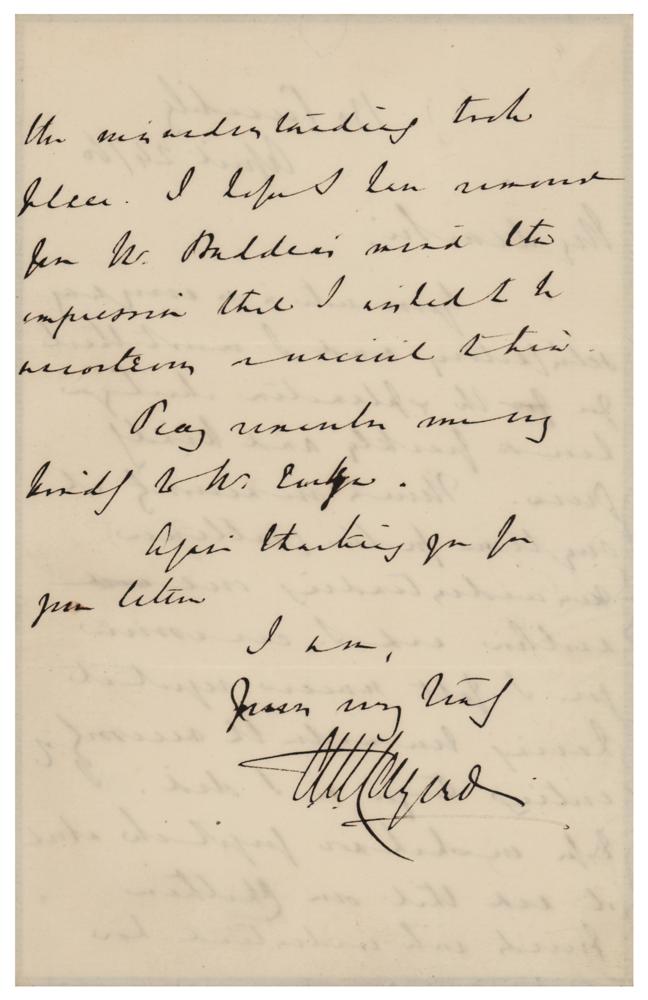 the misunderstanding took
place. I hope I have removed
from Mr. mind the
impression that I wished to be
uncourteous or uncivil to him.
Pray remember me very
kindly to Mr.
Again thanking you for
your letter
I am,
Yours very truly